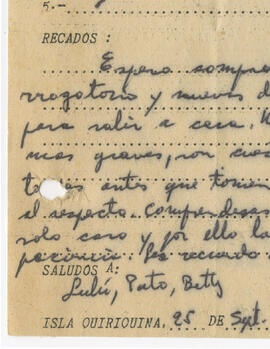 5.-
RECADOS :
Espero compre
rrogatorio y nuevos d
para salir a casa.
mas graves, son cues
antes que tomen
al respecto.
solo caso y por ello la
paciencia. Les recuerdo
SALUDOS A:
Lulú, Pato, Betty
ISLA QUIRIQUINA, 25 DE Sept.